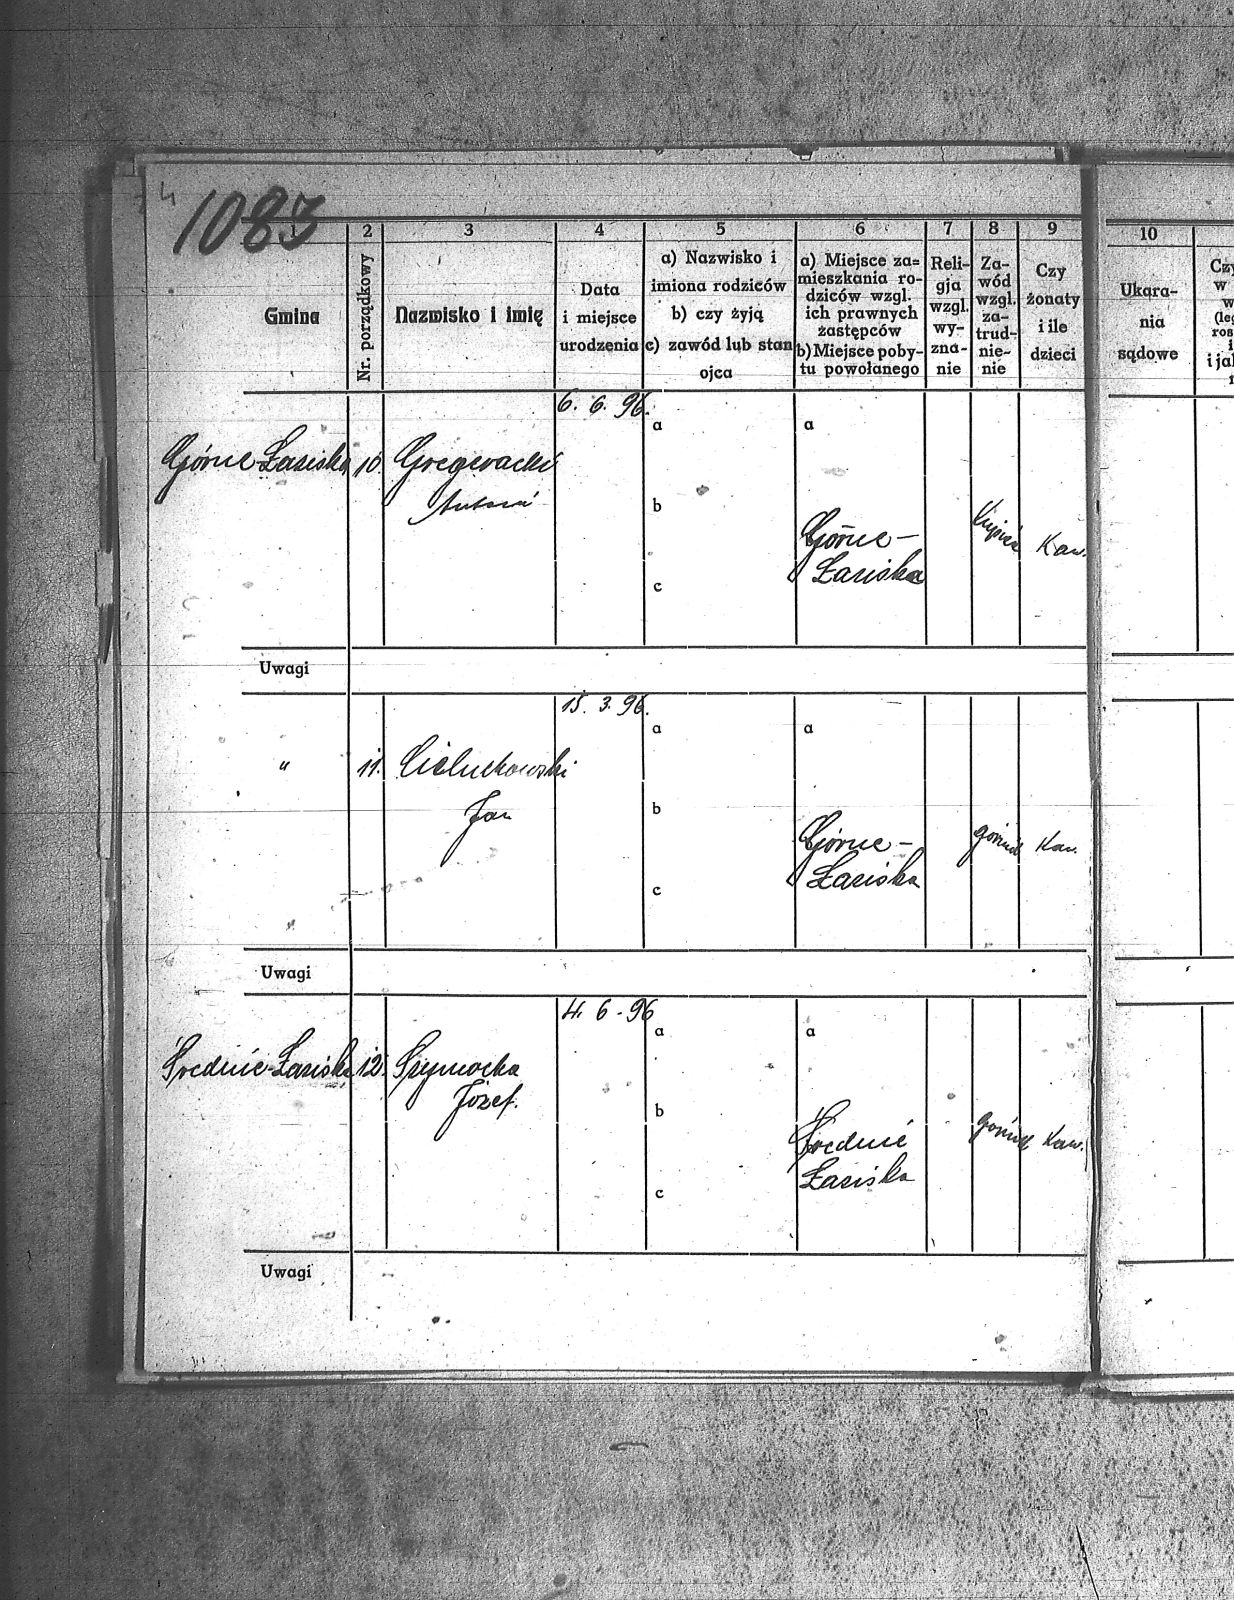 1083
1 2 3 4 5 6 7 8 9 10
Gmina
Nr. porządkowy
Nazwisko i imię
Data
i miejsce
urodzenia
a) Nazwisko i
imiona rodziców
b) czy żyją
c) zawód lub stan
ojca
a) Miejsce za=
mieszkania ro-
dziców wzgl.
ich prawnych
zastępców
b) Miejsce poby-
tu powołanego
Reli-
gja
wzgl.
wy-
zna-
nie
Za-
wód
wzgl.
za-
trud-
nie-
nie
Czy
żonaty
i ile
dzieci
Ukara-
nia
sądowe
6. 6. 96.
a a
Górne Łaziska 10.
Antoni
b
Górne-
Łaziska
Kaw.
c
Uwagi
15. 3. 96.
a a
" 11.
Jan
b
Górne-
Łaziska
górnik Kaw.
c
Uwagi
4. 6. 96
a a
Średnie-Łaziska 12.
Józef.
b
Średnie
Łaziska
górnik Kaw.
c
Uwagi